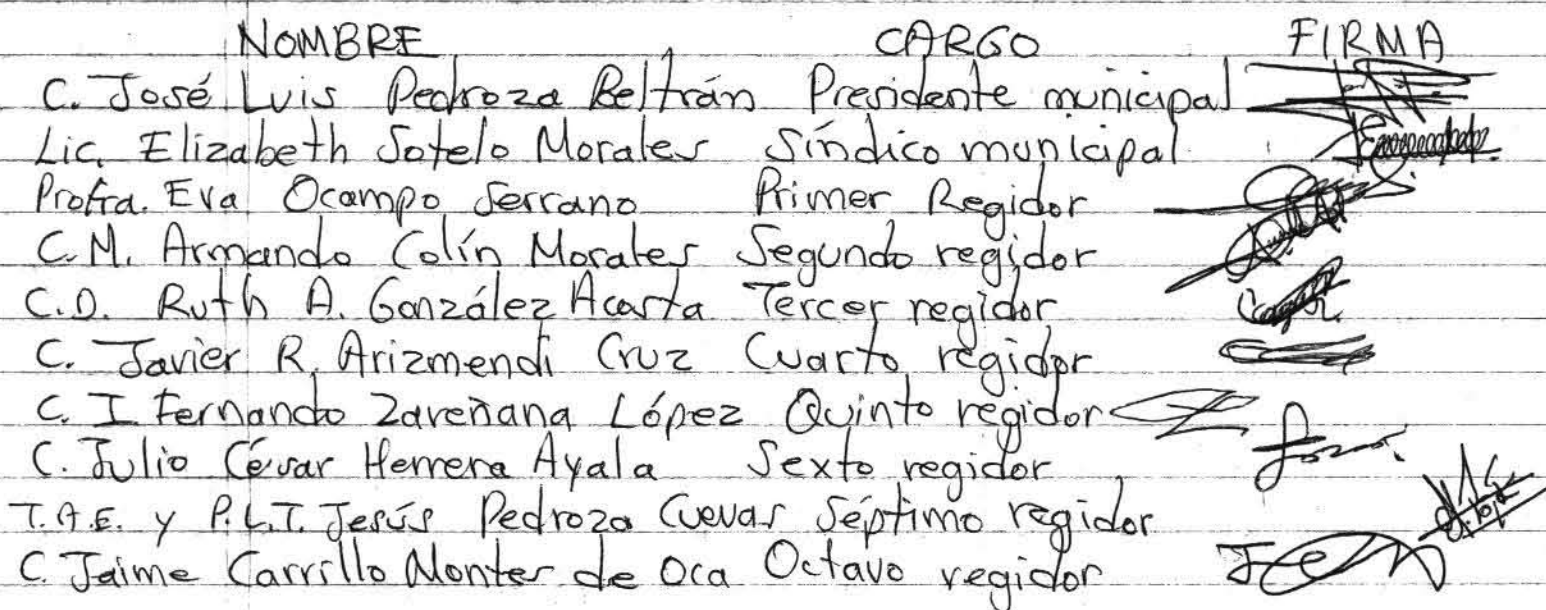 NOMBRE CARGO FIRMA
C. José Luis Pedroza Beltrán Presidente municipal
Lic. Elizabeth Sotelo Morales Síndico municipal
Profra. Eva Ocampo Serrano Primer Regidor
C.M. Armando Colín Morales Segundo regidor
C.D. Ruth A. González Acosta Tercer regidor
C. Javier R. Arizmendi Cruz Cuarto regidor
C. I Fernando Zareñana López Quinto regidor
C. Julio César Herrera Ayala Sexto regidor
T.A.E. y P.L.T. Jesús Pedroza Cuevas Séptimo regidor
C. Jaime Carrillo Montes de Oca Octavo regidor